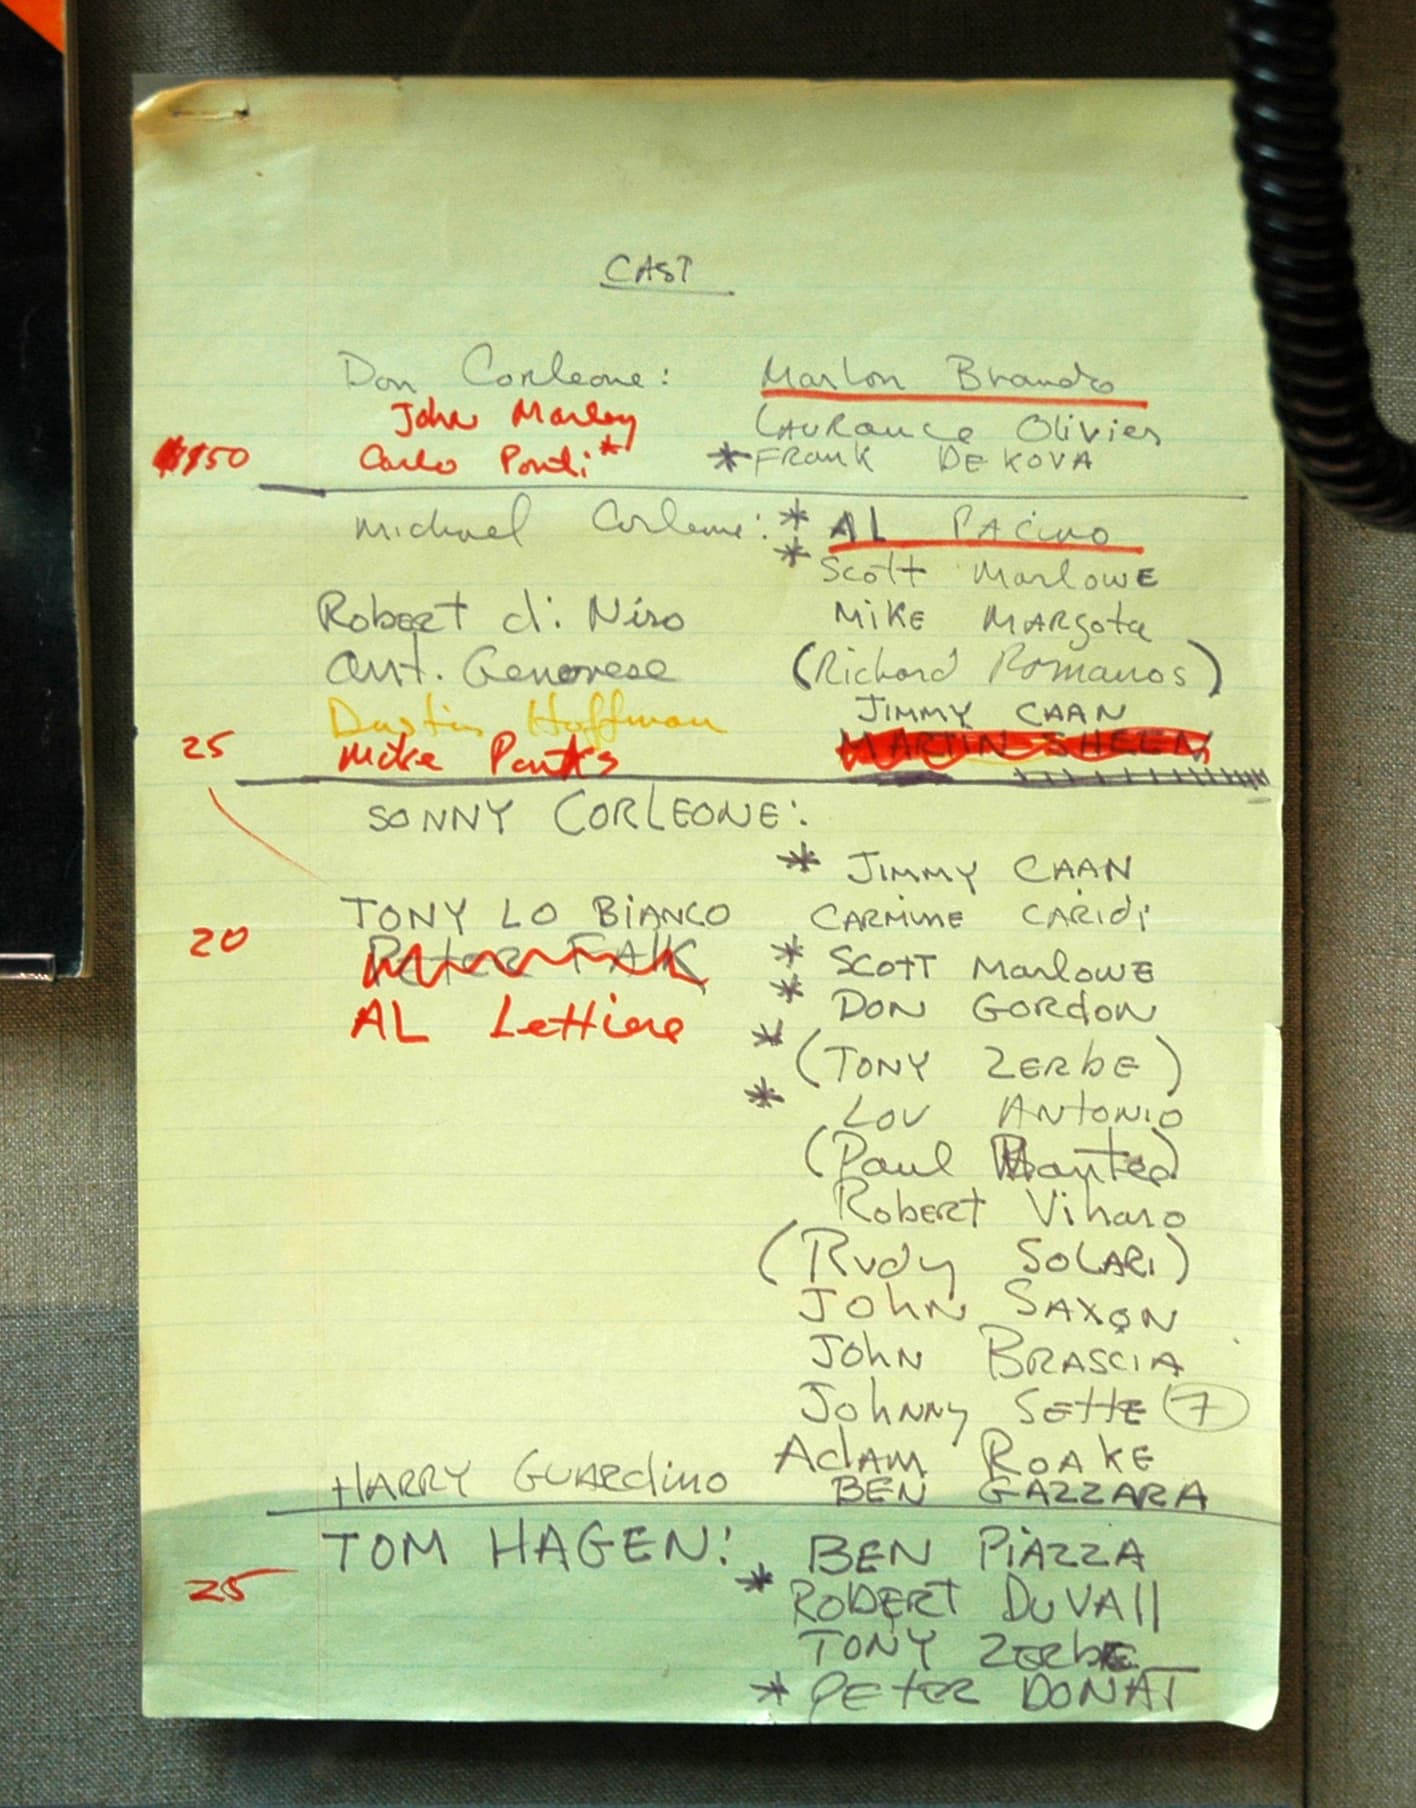 CAST
Don Corleone: Marlon Brando
John Marley Laurance Olivier
$150 Carlo Ponti* *Frank DEKOVA
Michael Corleone: * AL PACino
* Scott MarlowE
Robert di Niro MiKE MARgota
Ant. Genovese (Richard Romanos)
Dustin Hoffman JIMMY CAAN
25 Mike Parks MARTIN SHEEN
SONNY CORLEONE:
* JIMMY CAAN
TONY LO BiANCO CARMINE CARIDI
20 PeteR FAlK * SCOTT MarlowE
AL Lettiere * DON GORdON
* (TONY ZERbE)
* LOU ANtONiO
(Paul Mantee)
RobERT Viharo
(Rudy SOLARI)
JOhN SAXON
JOhN BRASCIA
JOhNNy SettE (7)
AdAM ROAKE
HARRY GUARdiNO BEN GAZZARA
TOM HAGEN: BEN PiAZZA
25 * ROBERT DuVAll
TONY ZERbE
* PETER DONAT